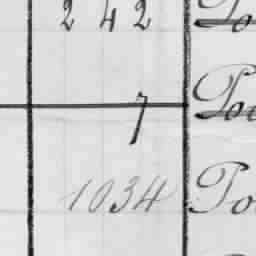 2 4 2 Po
7 Po
1034 Po